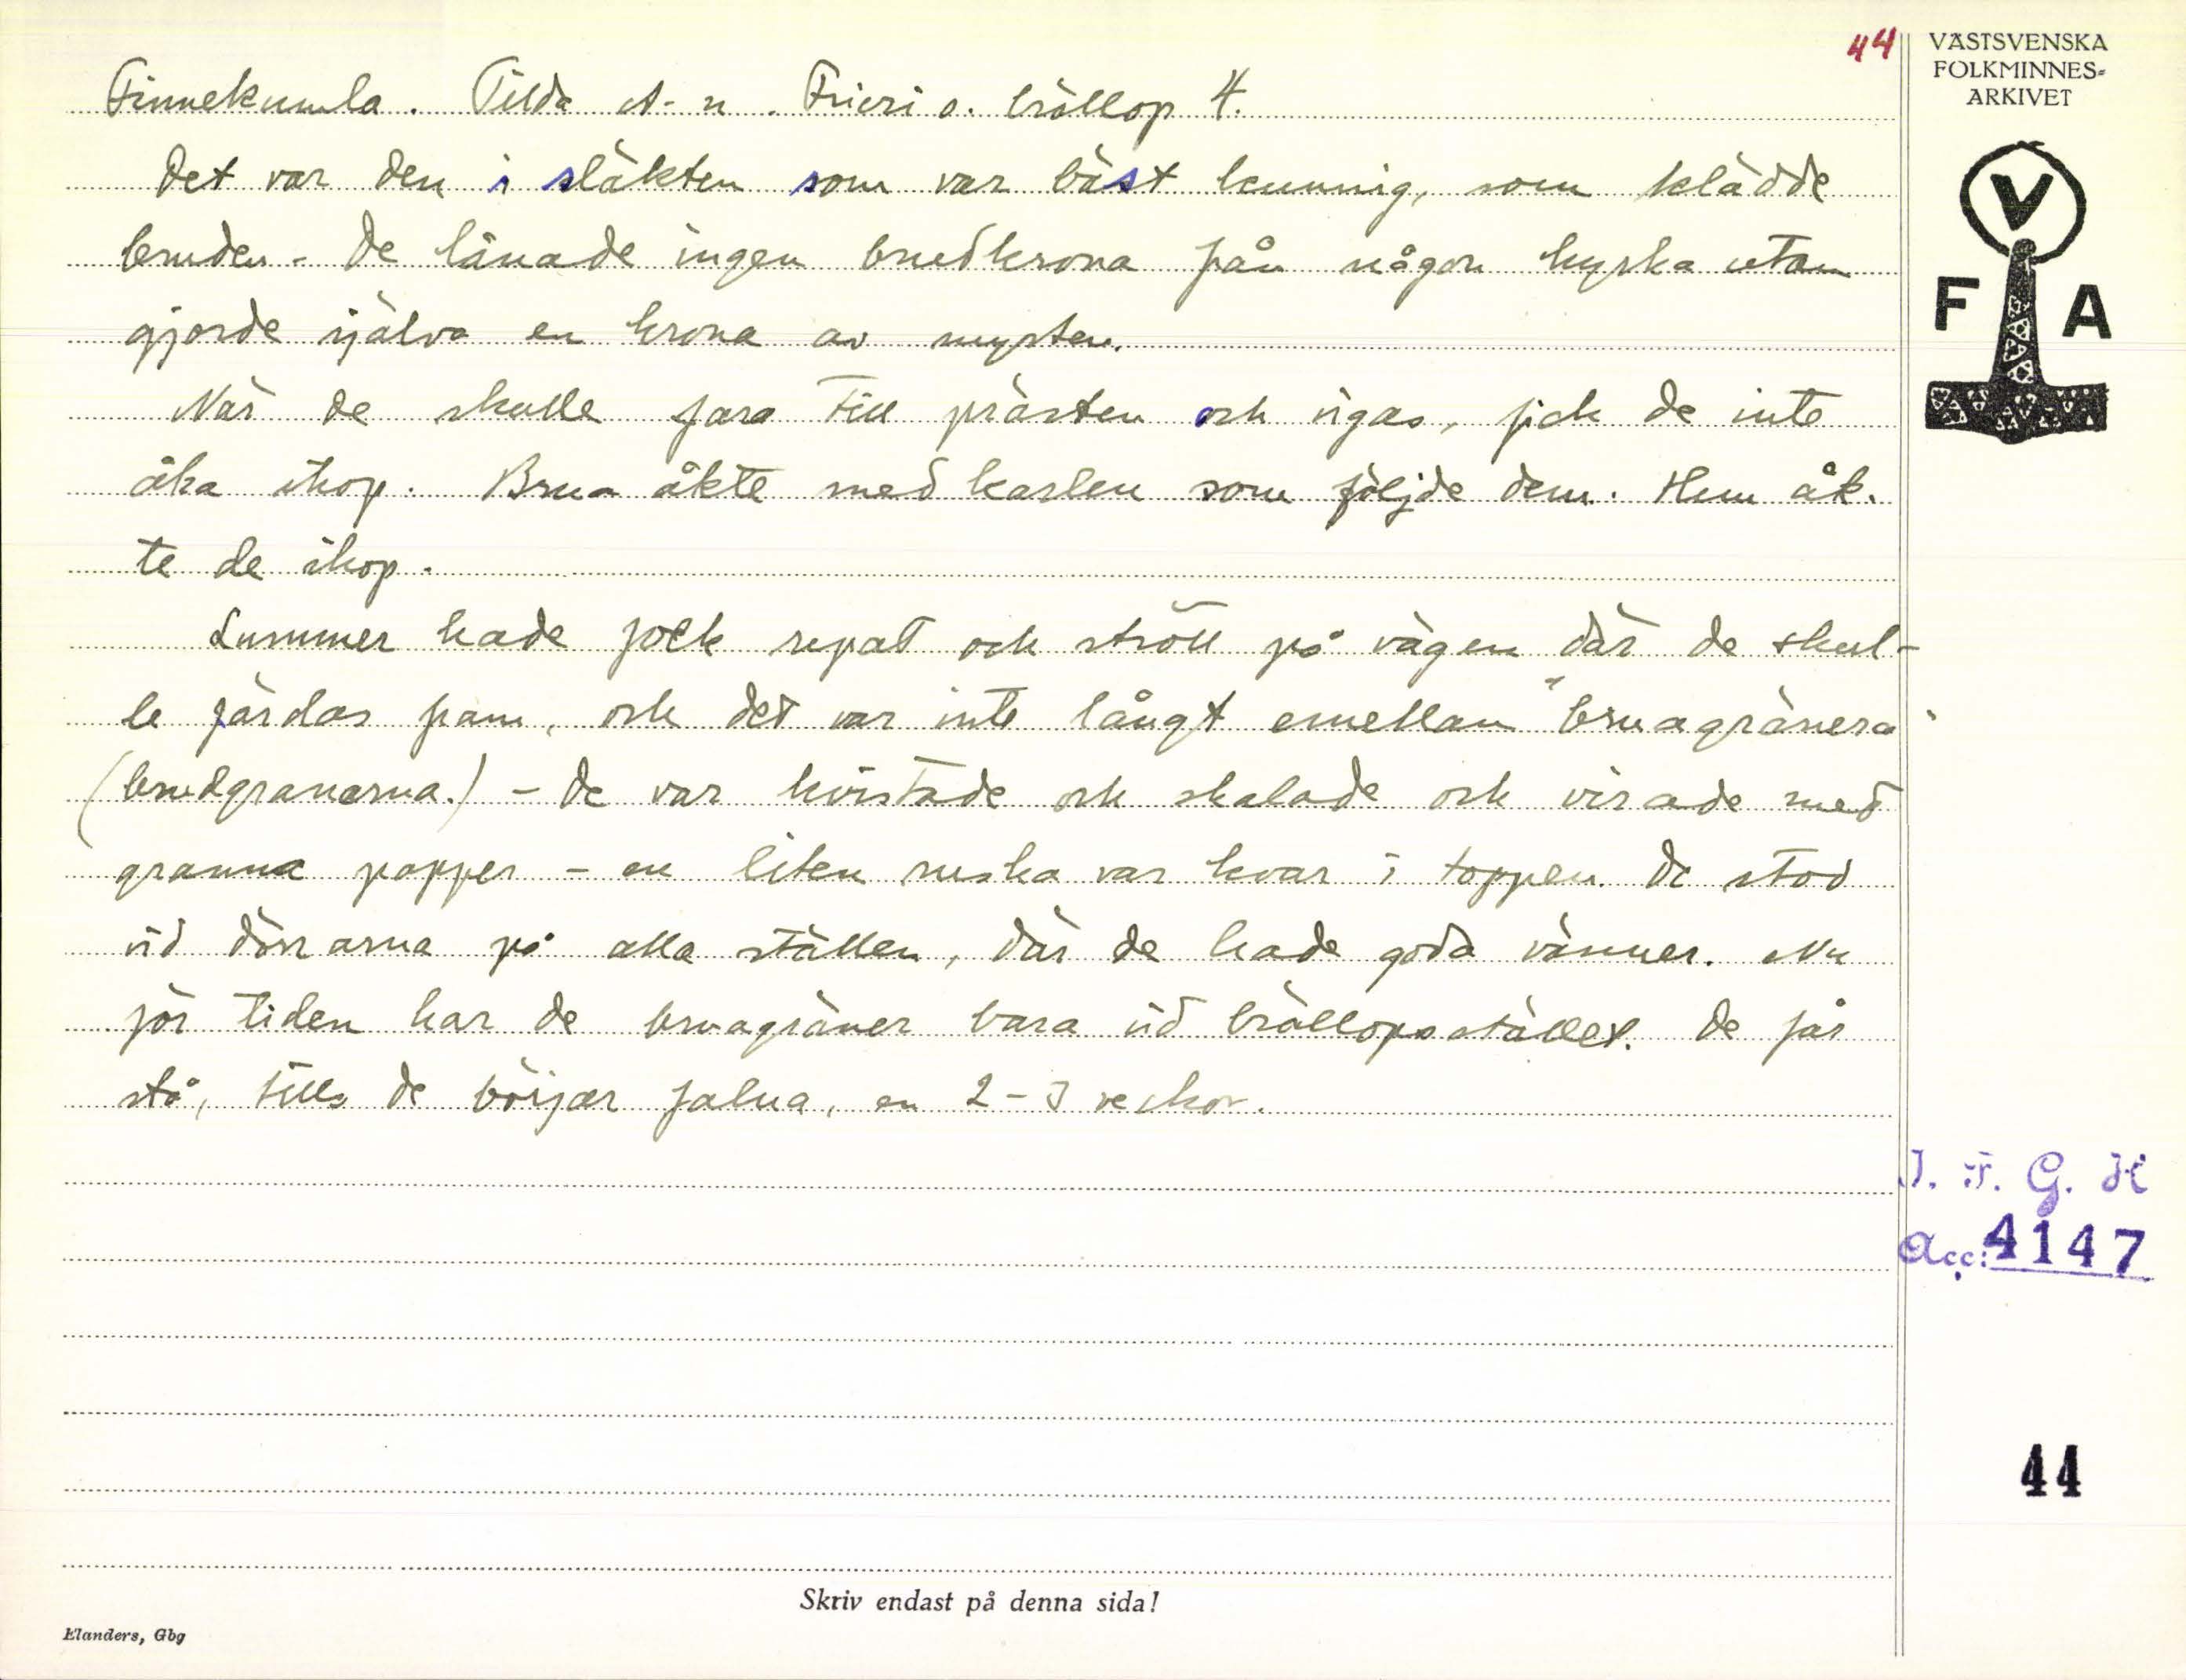 44
VÄSTSVENSKA
FOLKMINNES-
ARKIVET
V
F A
Finnekumla. Tilda A-n. Frieri o. bröllop 4.
Det var den i släkten som var bäst kunnig, som klädde
bruden. De lånade ingen brudkrona från någon kyrka utan
gjorde själva en krona av myrten.
När de skulle fara till prästen och vigas, fick de inte
åka ihop. Brua åkte med karlen som följde dem. Hem åk-
te de ihop.
Lummer hade folk repat och strött på vägen där de skul-
le färdas fram, och det var inte långt emellan "bruagränera"
(brudgranarna.) - De var kvistade och skalade och virade med
granna papper - en liten ruska var kvar i toppen. De stod
vid dörrarna på alla ställen, där de hade goda vänner. Nu
för tiden har de bruagräner bara vid bröllopsstället. De får
stå, tills de börjar falna, en 2-3 veckor.
I. F. G. H
Acc: 4147
44
Skriv endast på denna sida!
Elanders, Gbg